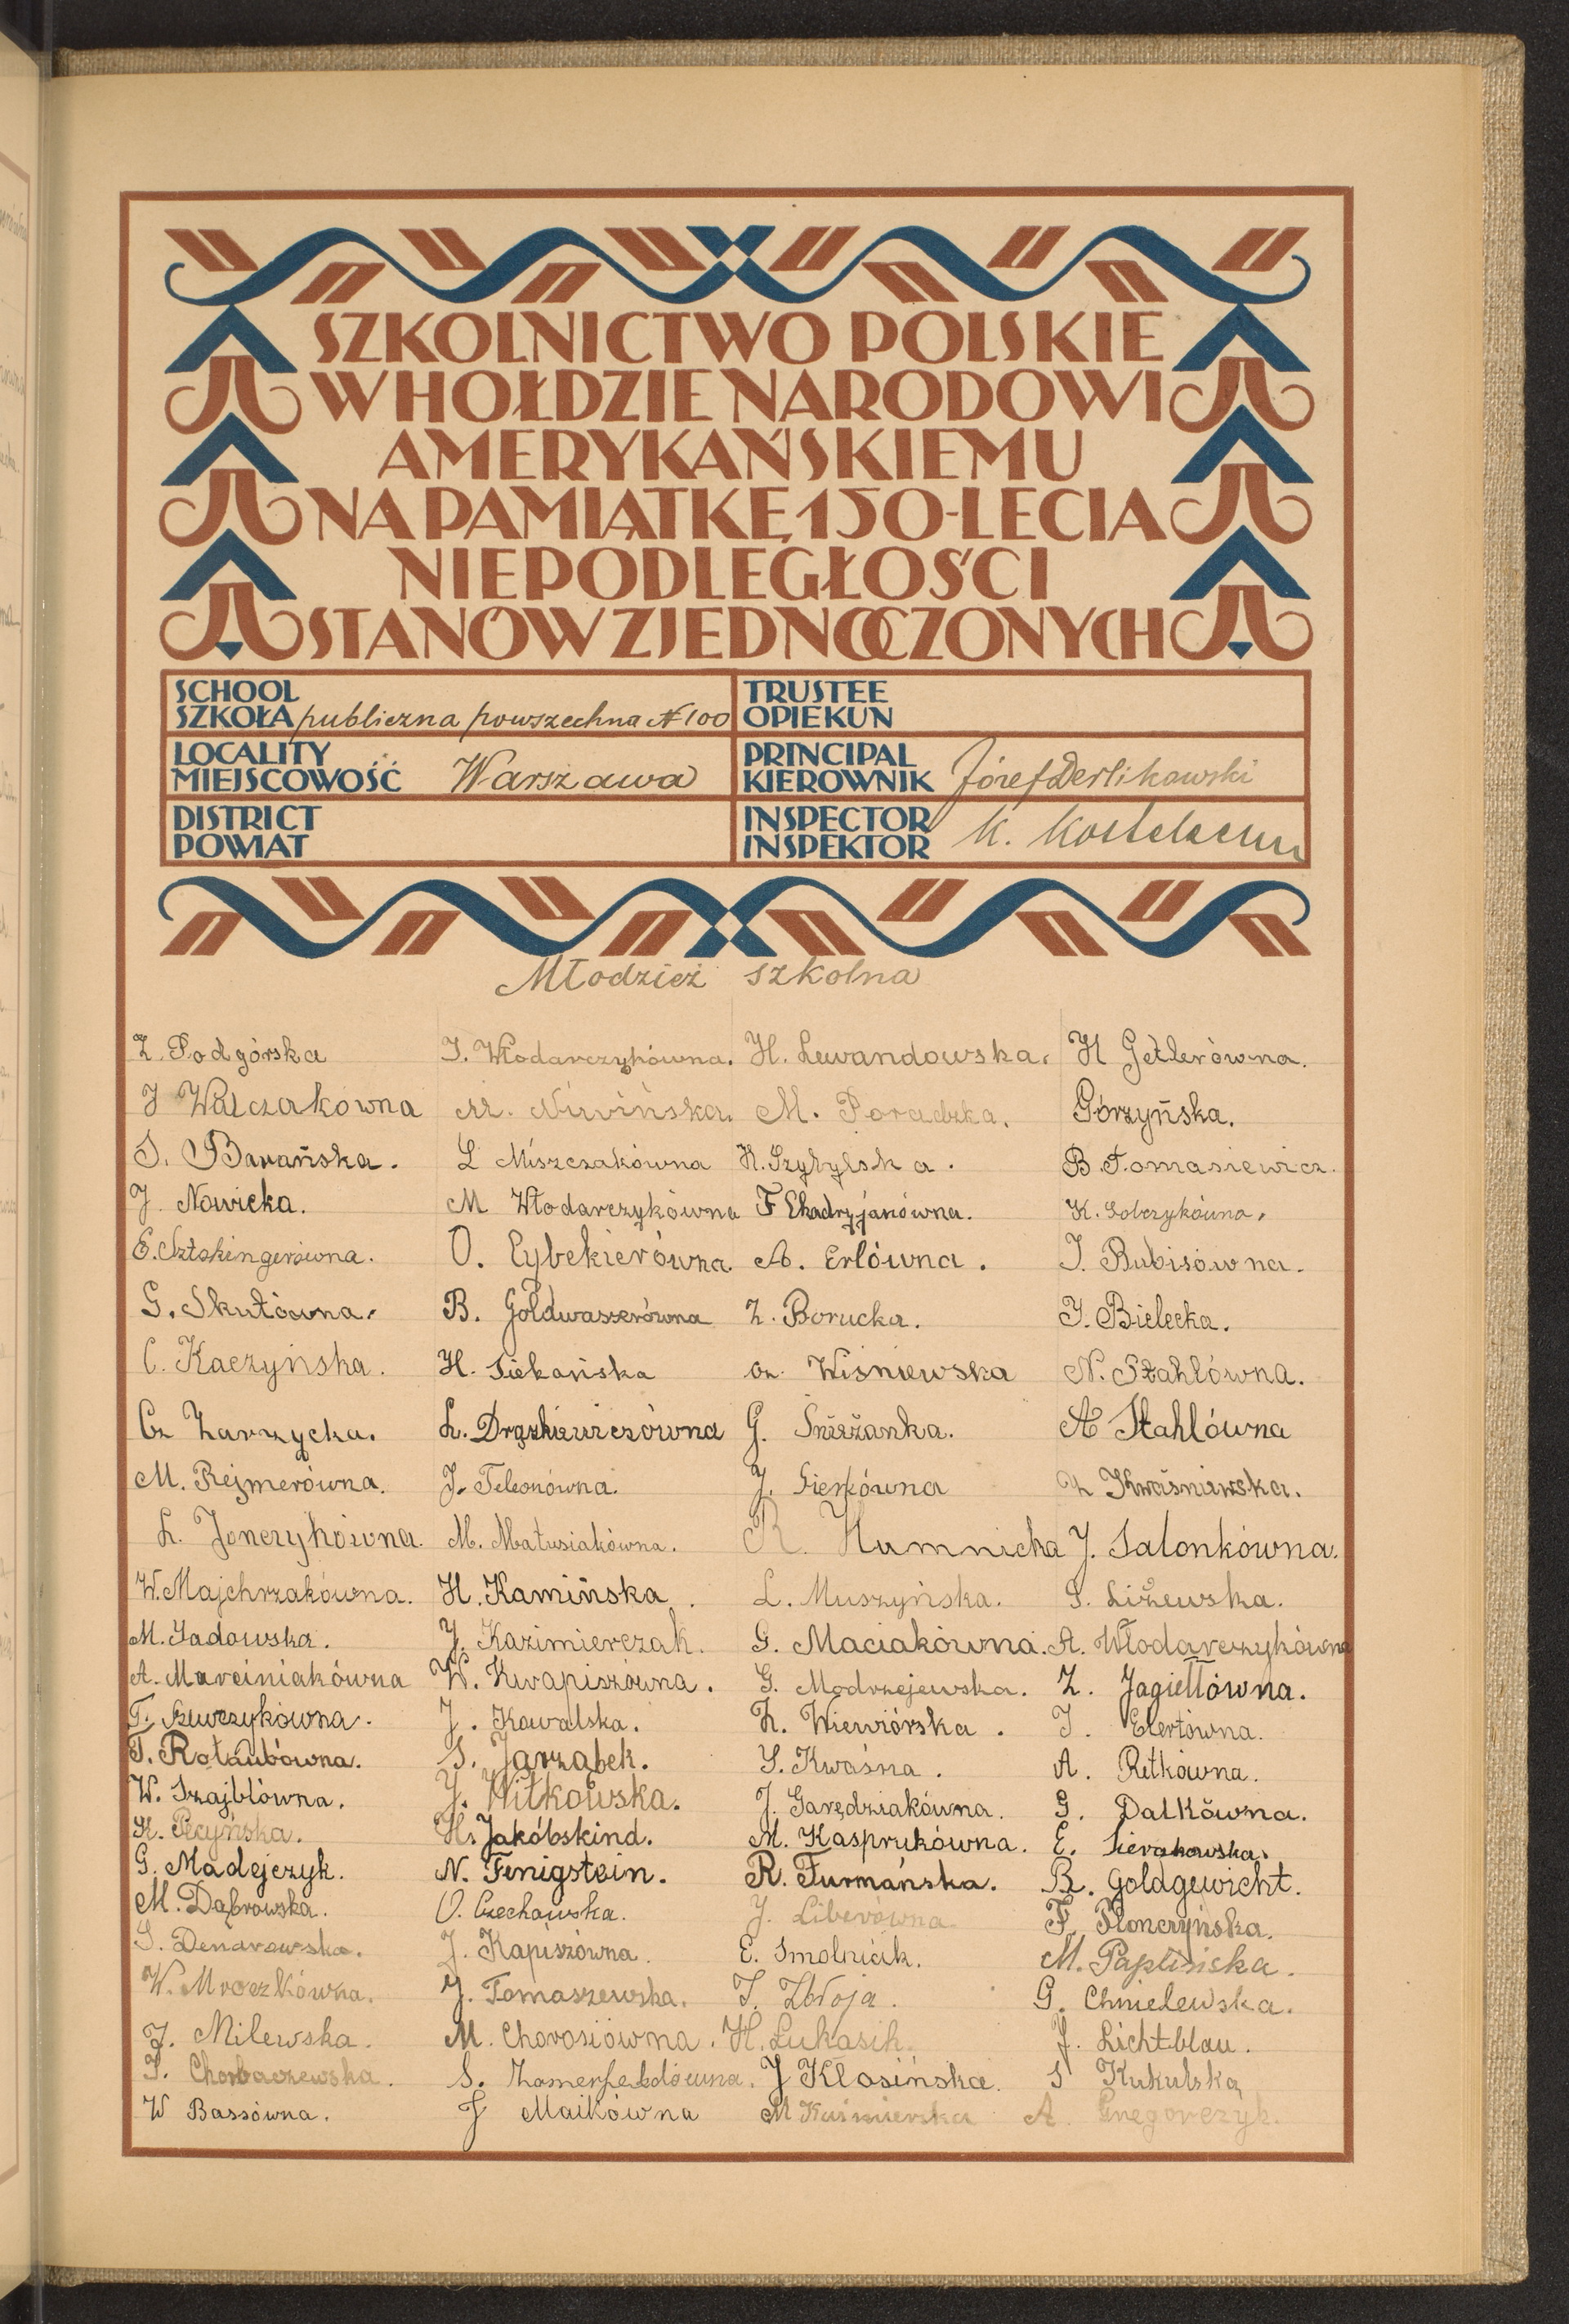 SZKOLNICTWO POLSKIE
W HOŁDZIE NARODOWI
AMERYKAŃSKIEMU
NA PAMIĄTKĘ 150-LECIA
NIEPODLEGŁOŚCI
STANÓW ZJEDNOCZONYCH
SCHOOL
SZKOŁA publiczna powszechna № 100
TRUSTEE
OPIEKUN
LOCALITY
MIEJSCOWOŚĆ Warszawa
PRINCIPAL
KIEROWNIK Józef Derlikowski
DISTRICT
POWIAT
INSPECTOR
INSPEKTOR K.
Młodzież szkolna
Z. Podgórska
J. Włodarczykówna.
H. Lewandowska.
H Getlerówna.
J Walczakówna
M. Niwińska.
M. Poradzka.
Górzyńska.
S. Barańska.
L Miszczakówna
H. Szybylska.
B. Tomasiewicz.
J. Nowicka.
M Włodarczykówna
F
K. Sobczykówna.
E. Sztokingerówna.
O. Cybekierówna.
A. Erlówna.
J. Rubisówna.
G. Skutówna.
B. Goldwasserówna
Z. Borucka.
J. Bielecka.
C. Kaczyńska.
H. Siekańska
Cz. Wiśniewska
N. Sztahlówna.
Cz Zarzycka.
L. Drążkiewiczówna
G. Śnieżanka.
A Stahlówna
M. Rejmerówna.
J. Feleonówna.
J. Sierkówna
Z Kwaśniewska.
L. Jonczykówna.
M. Matusiakówna.
R. Humnicka
J. Salonkówna.
W. Majchrzakówna.
H. Kamińska.
L. Muszyńska.
S. Liżewska.
M. Sadowska.
J. Kazimierczak.
G. Maciakówna.
A. Włodarczykówna
A. Marciniakówna
W. Kwapiszówna.
G. Modrzejewska.
Z. Jagiełłówna.
T. Szewczykówna.
J. Kowalska.
Z. Wiewiórska.
J. Elertówna.
T. Rotaubówna.
S. Jarząbek.
S. Kwaśna.
A. Retkówna.
W. Szajblówna.
J. Witkowska.
J. Garędziakówna.
G. Dałkówna.
H. Jakóbskind.
M. Kasprukówna.
E. Sierakowska.
G. Madejczyk.
N. Fenigstein.
R. Furmańska.
B. Goldgewicht.
M. Dąbrowska.
O. Czechowska.
J. Liberówna.
F. Płonczyńska.
S. Denarowska.
J. Kapiszówna.
E. Smolniak.
M. Paplińska.
W. Mroczkówna.
J. Tomaszewska.
T. Zbroja.
G. Chmielewska.
J. Milewska.
M. Chorosiówna.
H. Łukasik.
J. Lichtblau.
S. Chorbaczewska.
S. Zamerfeldówna.
J Kłosińska.
S Kukulska
W Bassówna.
J Maikówna
M Kuśmierska
A. Gregorczyk.